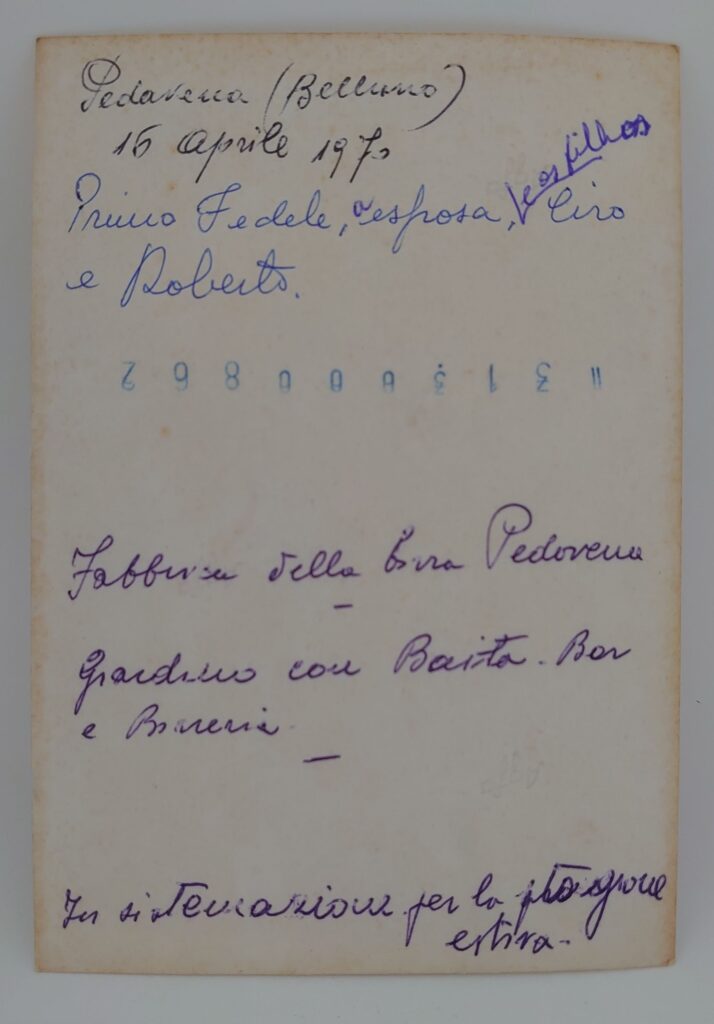 Pedavena (Belluno)
16 Aprile 1970
Primo Fedele, a esposa, e os filhos Ciro
e Roberto.
" 3 1 3 0 0 0 8 6 2
Fabbrica della birra Pedavena
Giardino con Baita - Bar
e Birreria
In sistemazione per la stagione
estiva -